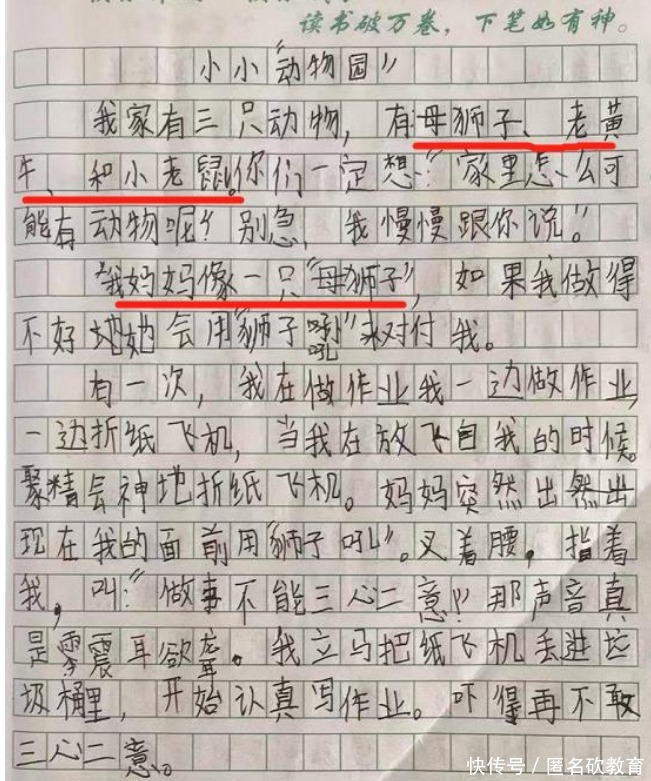 读书破万卷，下笔如有神。
小小“动物园”
我家有三只动物，有母狮子、老黄
牛、和小老鼠。你们一定想：“家里怎么可
能有动物呢？别急，我慢慢跟你说。”
“我妈妈像一只“母狮子”，如果我做得
不好地她会用“狮子吼”来对付我。
有一次，我在做作业我一边做作业，
一边折纸飞机，当我在放飞自我的时候。
聚精会神地折纸飞机。妈妈突然出然出
现在我的面前用“狮子吼”。叉着腰，指着
我，叫：“做事不能三心二意！”那声音真
是震耳欲聋。我立马把纸飞机丢进垃
圾桶里，开始认真写作业。吓得再不敢
三心二意。
快传号 / 匿名砍教育